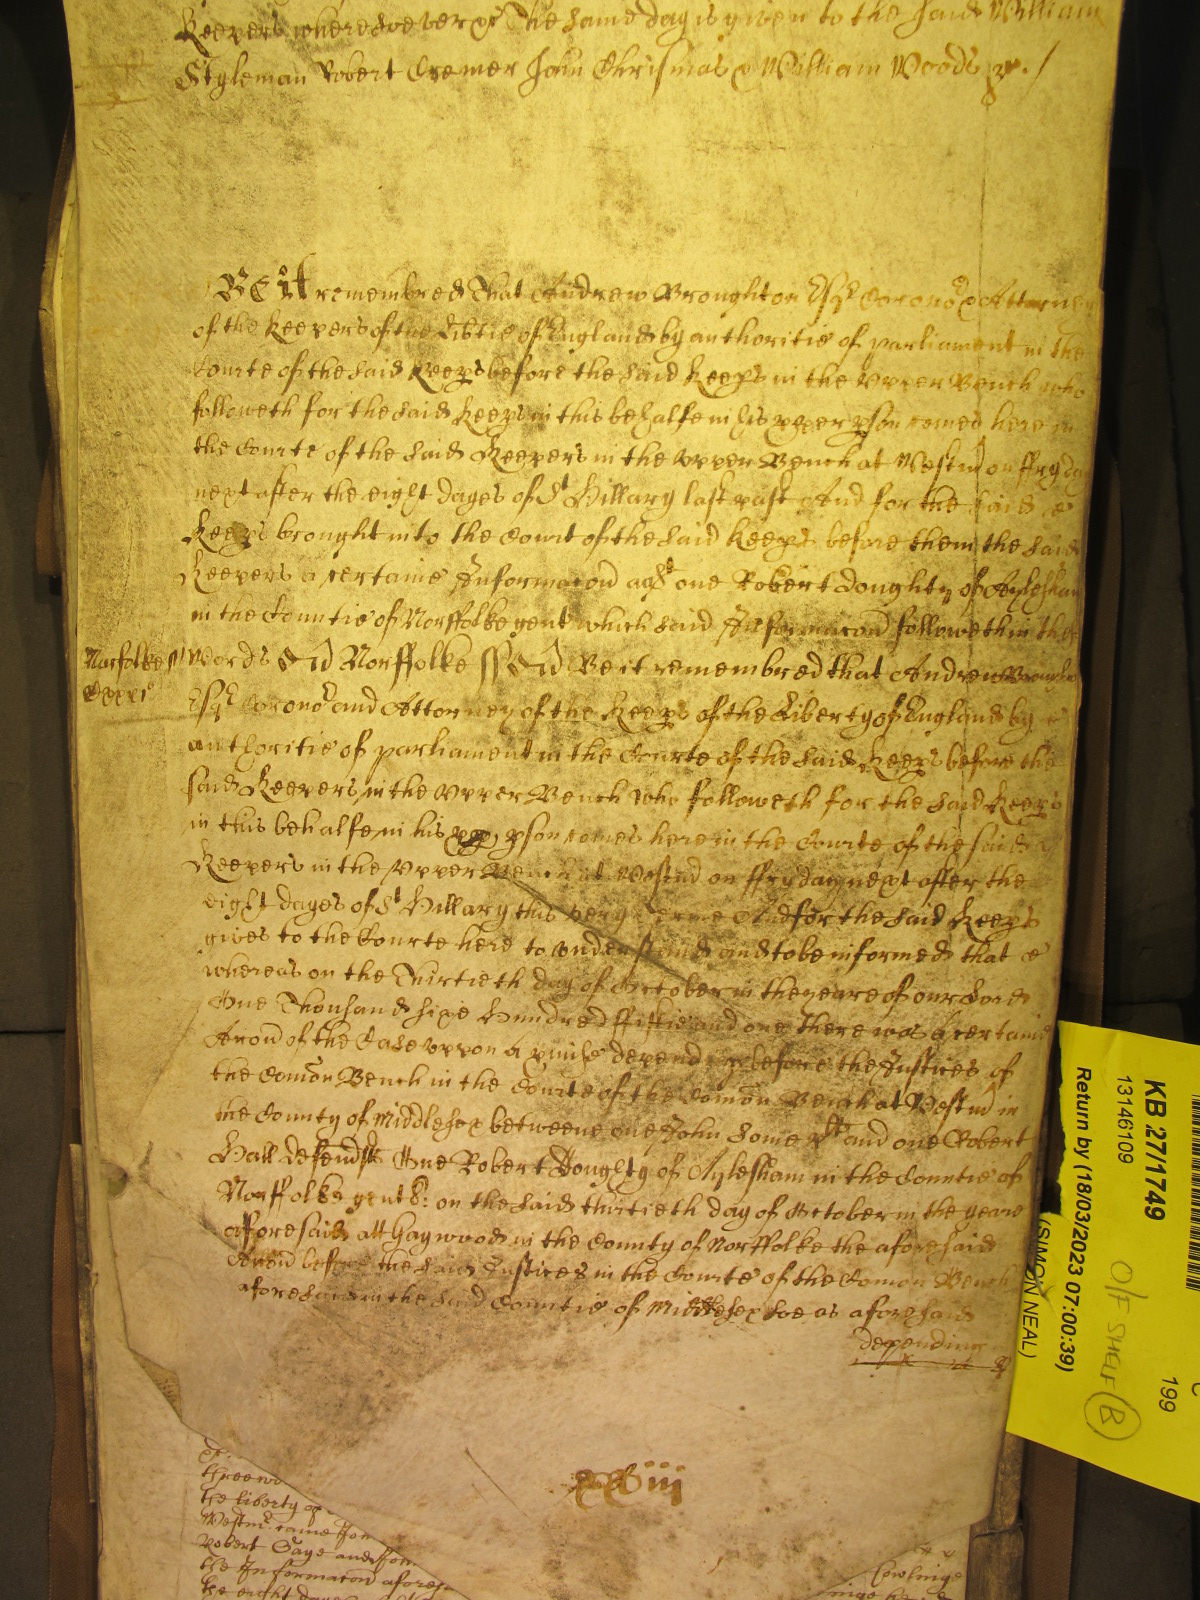 Keepers wheresoever &c The same day is given to the said William
Styleman Robert Cremer John Chrismas & William Woods &c /
Be it remembred That Andrew Broughton Esqr Corono & Attorney
of the Keepers of the Libtie of England by authoritie of parliament in the
Courte of the said Keeps before the said Keeps in the Upper Bench who
followeth for the said Keeps in this behalfe in his pper pson comes here in
the Courte of the said Keepers in the Upper Bench at Westm on ffryday
next after the eight dayes of St Hillary last past And for the said
Keeps brought into the Court of the said Keeps before them the said
Keepers a certaine Informacon agt one Robert Doughty of Aylesham
in the Countie of Norffolke gent which said Informacon followeth in these
Norfolke ss words
Norffolke ss Be it remembred that Andrew Broughton
Esqr Corono and Attorney of the Keeps of the Liberty of England by
authoritie of parliament in the Courte of the said Keeps before the
said Keepers in the Upper Bench who followeth for the said Keeps
in this behalfe in his pson comes here in the Courte of the said
Keepers in the Upper Bench at Westm on ffryday next after the
eight dayes of St Hillary this very Terme And for the said Keeps
gives to the Courte here to understand and to be informed that
whereas on the Thirtieth day of October in the yeare of our Lord
One Thousand sixe Hundred ffiftie and one there was a certaine
Accon of the Case uppon a depending before the Justices of
the Comon Bench in the Courte of the Comon Bench at Westm in
the County of Middlesex betweene one John Somer plt and one Robert
Hall defendt One Robert Doughty of Aylesham in the Countie of
Norffolke gent on the said thirtieth day of October in the yeare
afforesaid att Gaywood in the County of Norffolke the aforesaid
Accon before the said Justices in the Courte of the Comon Bench
aforesaid in the said Countie of Middlesex soe as aforesaid
depending
xxiii
three
the liberty of
Westm came
Robert Gaye and
the Informacon afores
the eight dayes
KB 27/1749
13146109
Return by (18/03/2023 07:00:39)
(SIMON NEAL)
O/F SHELF B
199